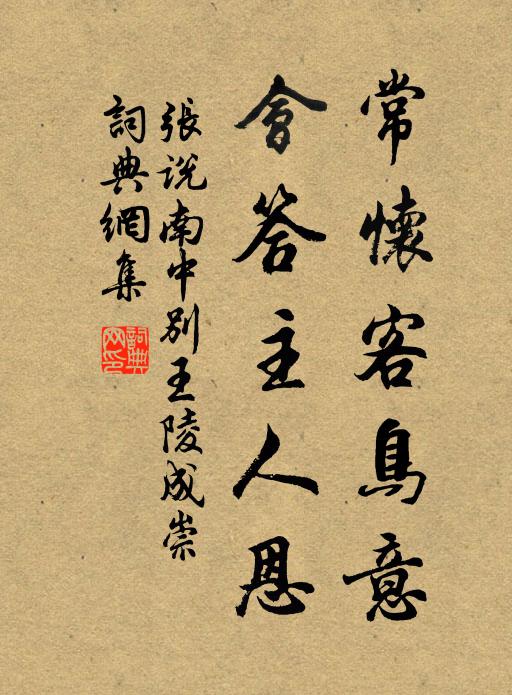 常懷客鳥意
會答主人恩
張說南中別王陵成崇
詞典網集
詞典網印